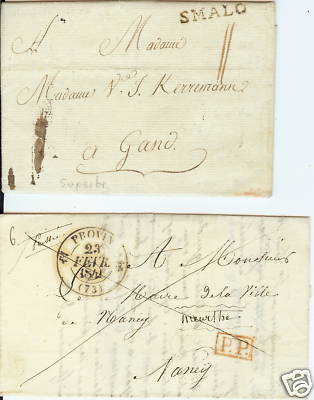 SMALO
A Madame
Madame Ve J. Kerremans
a Gand.
Superbe
6.
PROVINS
23
FEVR.
1841
(73)
A Monsieur
Maire de la Ville
de Nancy Meurthe
Nancy
P.P.